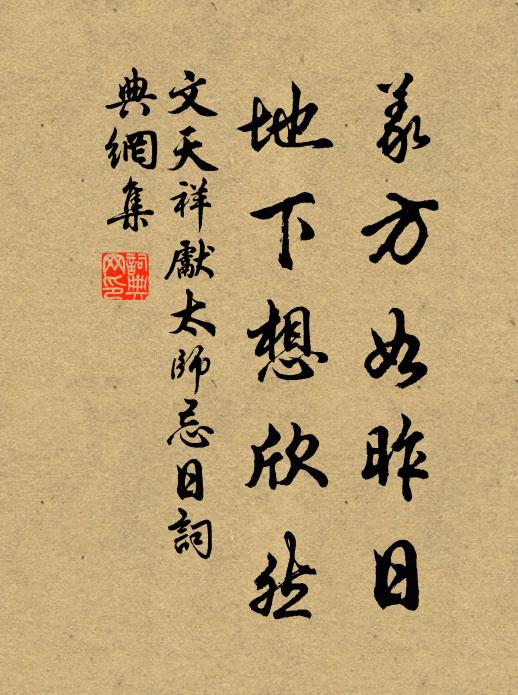 義方如昨日
地下想欣然
文天祥獻太師忌日詞
典網集
詞典
网印